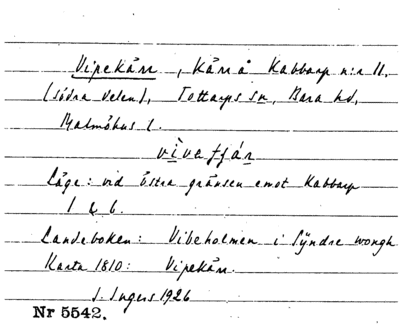 Vipekärr, Kärr å Kabbarp n:r 11.
(södra delen), Tottarps sn, Bara hd,
Malmöhus l.
vìvatjár
Läge: vid östra gränsen emot Kabbarp
1 & 6.
Landeboken: Vibeholmen i Syndre wongh
Karta 1810: Vipekärr.
I. Ingers 1926
Nr 5542.